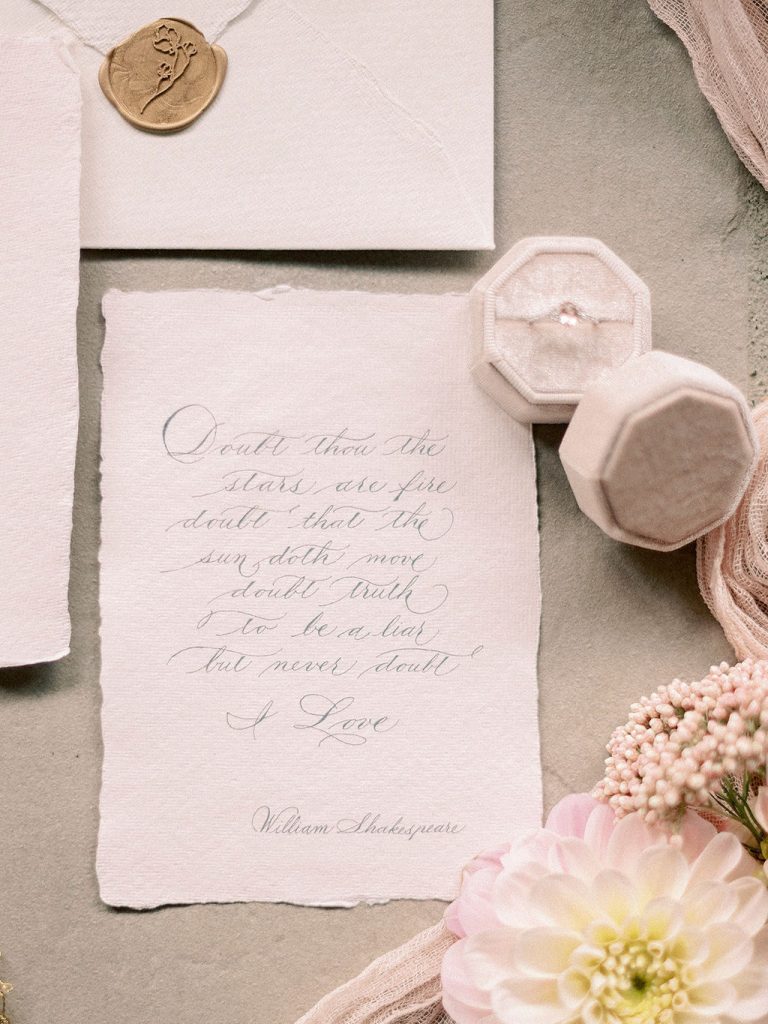 Doubt thou the
stars are fire
doubt that the
sun doth move
doubt truth
to be a liar
but never doubt
I Love
William Shakespeare